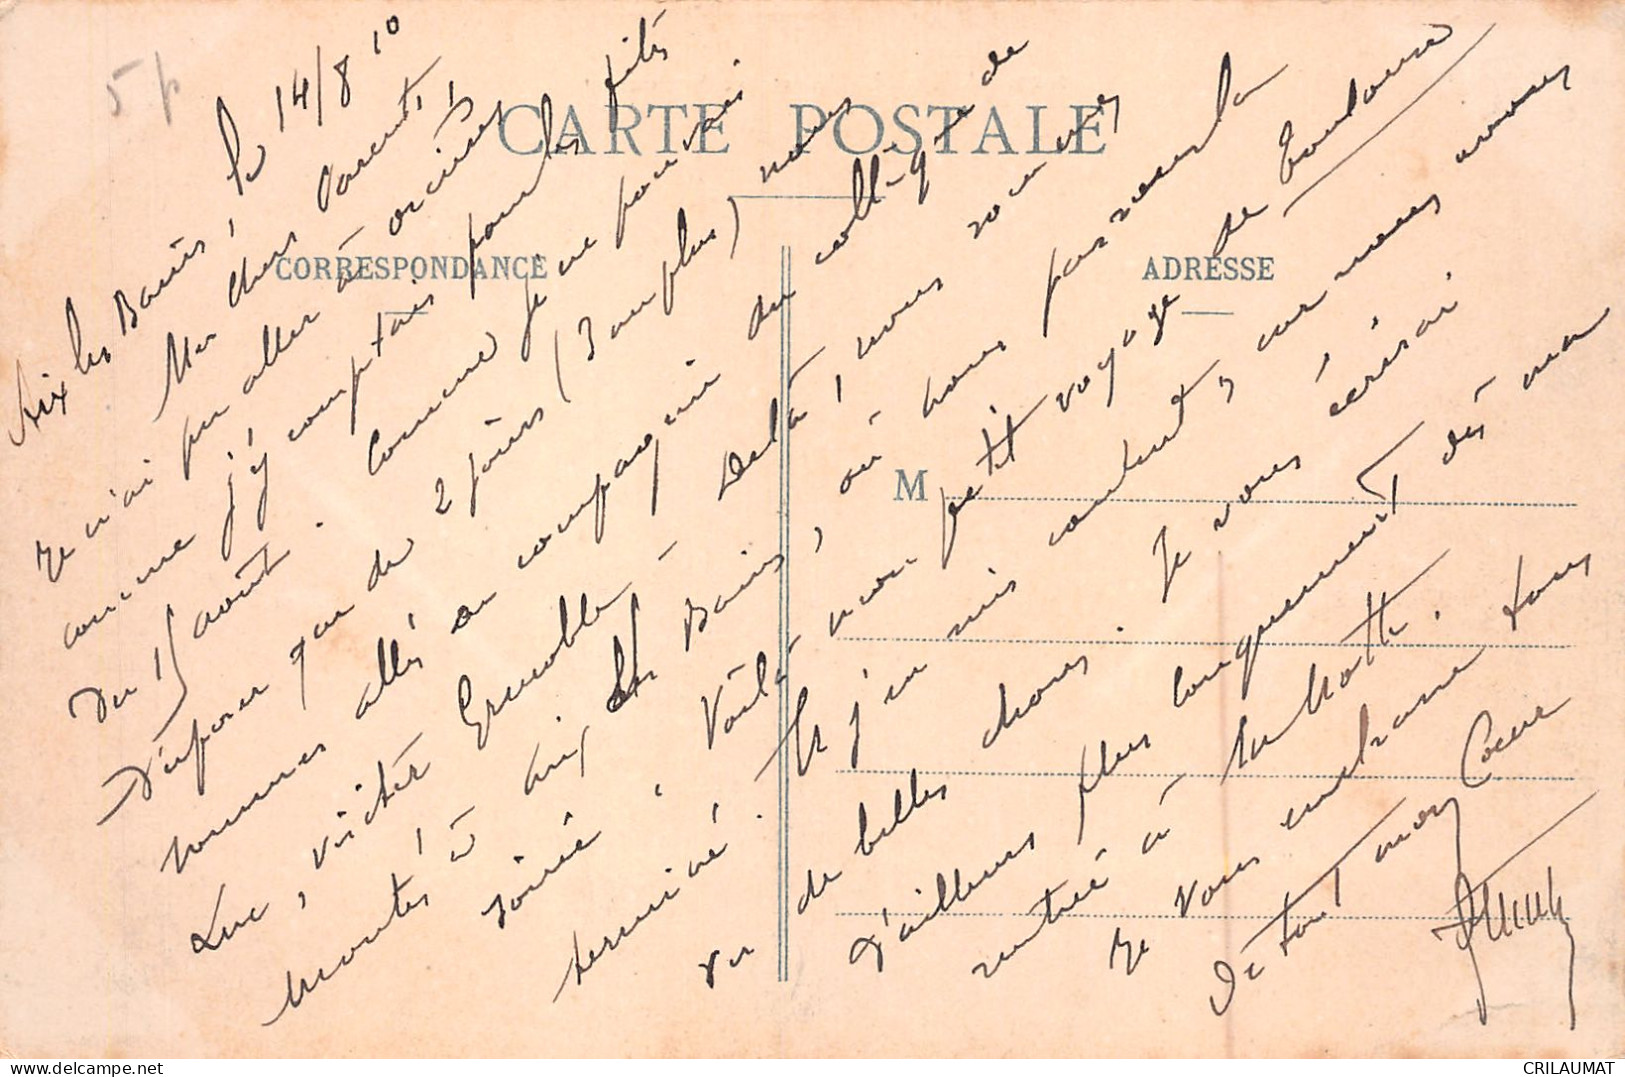 5 p
CARTE POSTALE
CORRESPONDANCE
ADRESSE
M
Aix les Bains, le 14/8 10
Mes chers Parents,
Je n'ai pu aller à
comme j'y comptais pour les fêtés
du 15 août. Comme je ne pouvais
disposer que de 2 jours (3 au plus) nous
sommes allés en compagnie du collègue de
Luc, visiter Grenoble. De là, nous sommes
montés à Aix les Bains, où nous passons la
soirée. Voilà mon petit voyage de Toulouse
terminé. Je j'en suis content, car nous avons
vu de belles choses. Je vous écrirai
d'ailleurs plus longuement dès ma
rentrée à la Motte.
Je vous embrasse tous
de tout mon Coeur
CRILAUMAT